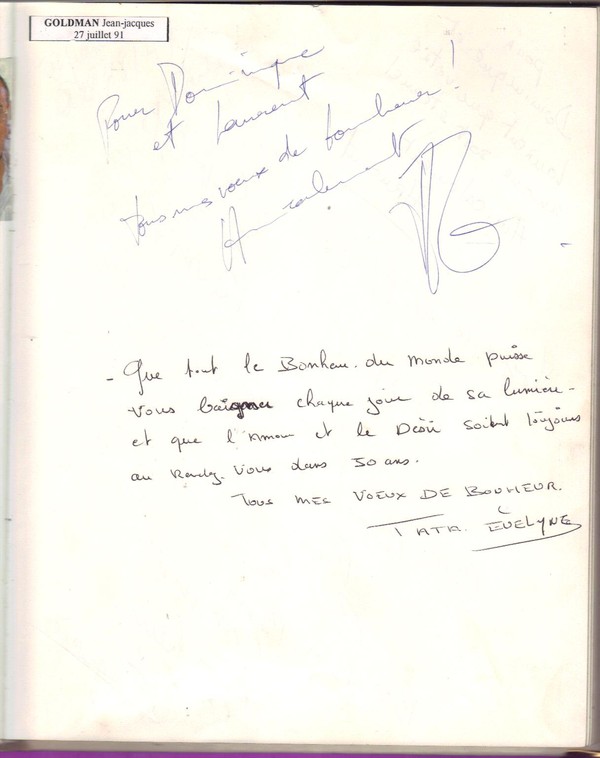 GOLDMAN Jean-jacques
27 juillet 91
Pour Dominique
et Laurent
Tous mes voeux de bonheur !
Amicalement
- Que tout le Bonheur du monde puisse
vous baigner chaque jour de sa lumière -
et que l'Amour et le Désir soient toujours
au Rendez-vous dans 50 ans.
TOUS MES VOEUX DE BONHEUR.
TATA. EVELYNE